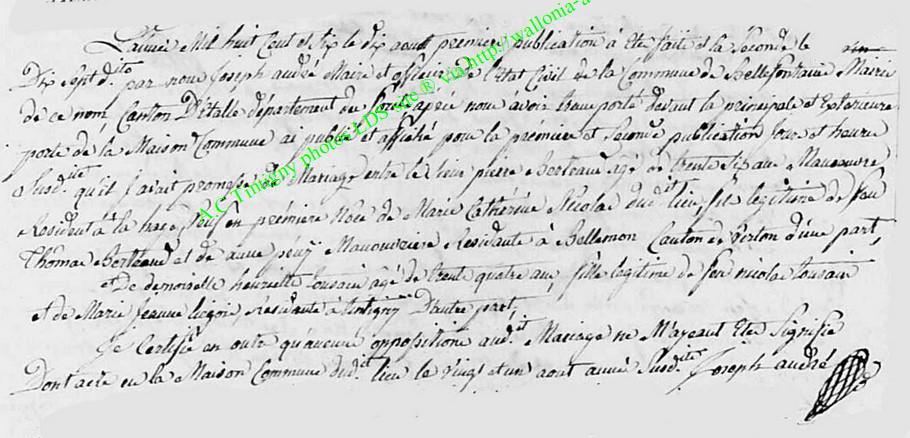 L'année Mil huit Cent et Six le dix aout premier publication à Eté faite et la Seconde le
Dix Sept dito par nous Joseph andré Maire et officier de l'Etat Civil de la Commune de Bellefontaine Mairie
de ce nom Canton D'Etalle département des forets après nous avoir transporté devant la principale et Exterieure
porte de la Maison Commune ai publié et affiché pour la première et Seconde publication jour et heure
Susdite qu'il Savait promesse de Mariage entre le Sieur pierre Berteaux agé de trente Six ans Manouvre
Résident à la hage, Veuf en première Noce de Marie Catherine Nicolas dudit lieu, fils legitime de feu
Thomas Berteaux et de anne Manouvriere Residante à Bellemon Canton de Verton d'une part,
et De demoiselle henriette tousain agé de trente quatre ans, fille legitime de feu nicolas tousain
et de Marie Jeanne liegois, residante à tintigny D'autre part,
Je Certifie en outre qu'aucune opposition audit Mariage ne M'ayant Eté Signifié
Dont acte en la Maison Commune dudit lieu le vingt et un aout année Susdite Joseph andré
A.C. Tintigny photos LDS site ® via http://wallonia-a